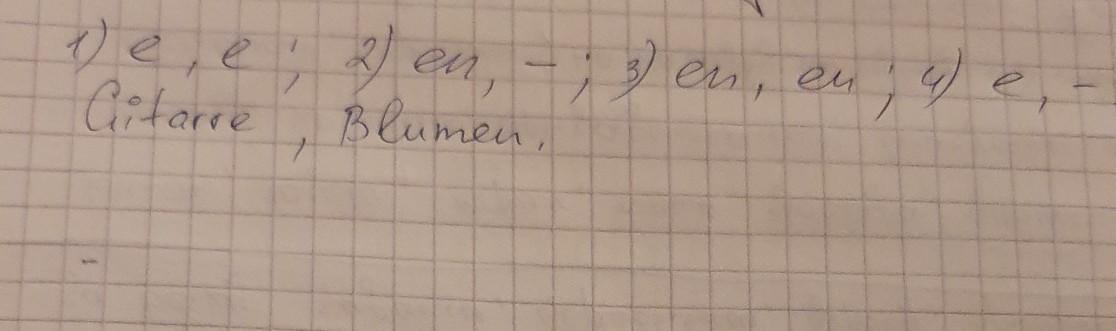 1) e, e; 2) en, -; 3) en, en; 4) e, -
Gitarre, Blumen.